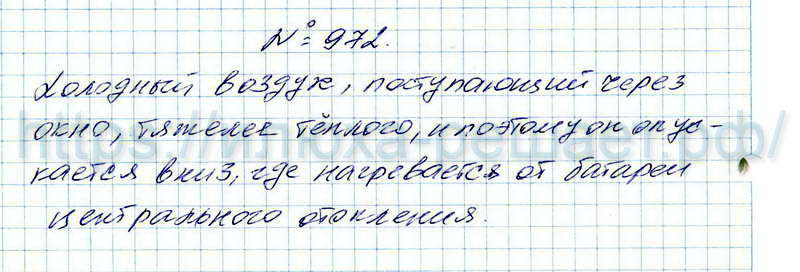 № 972.
Холодный воздух, поступающий через
окно, тяжелее тёплого, и поэтому он опус-
кается вниз, где нагревается от батареи
центрального отопления.